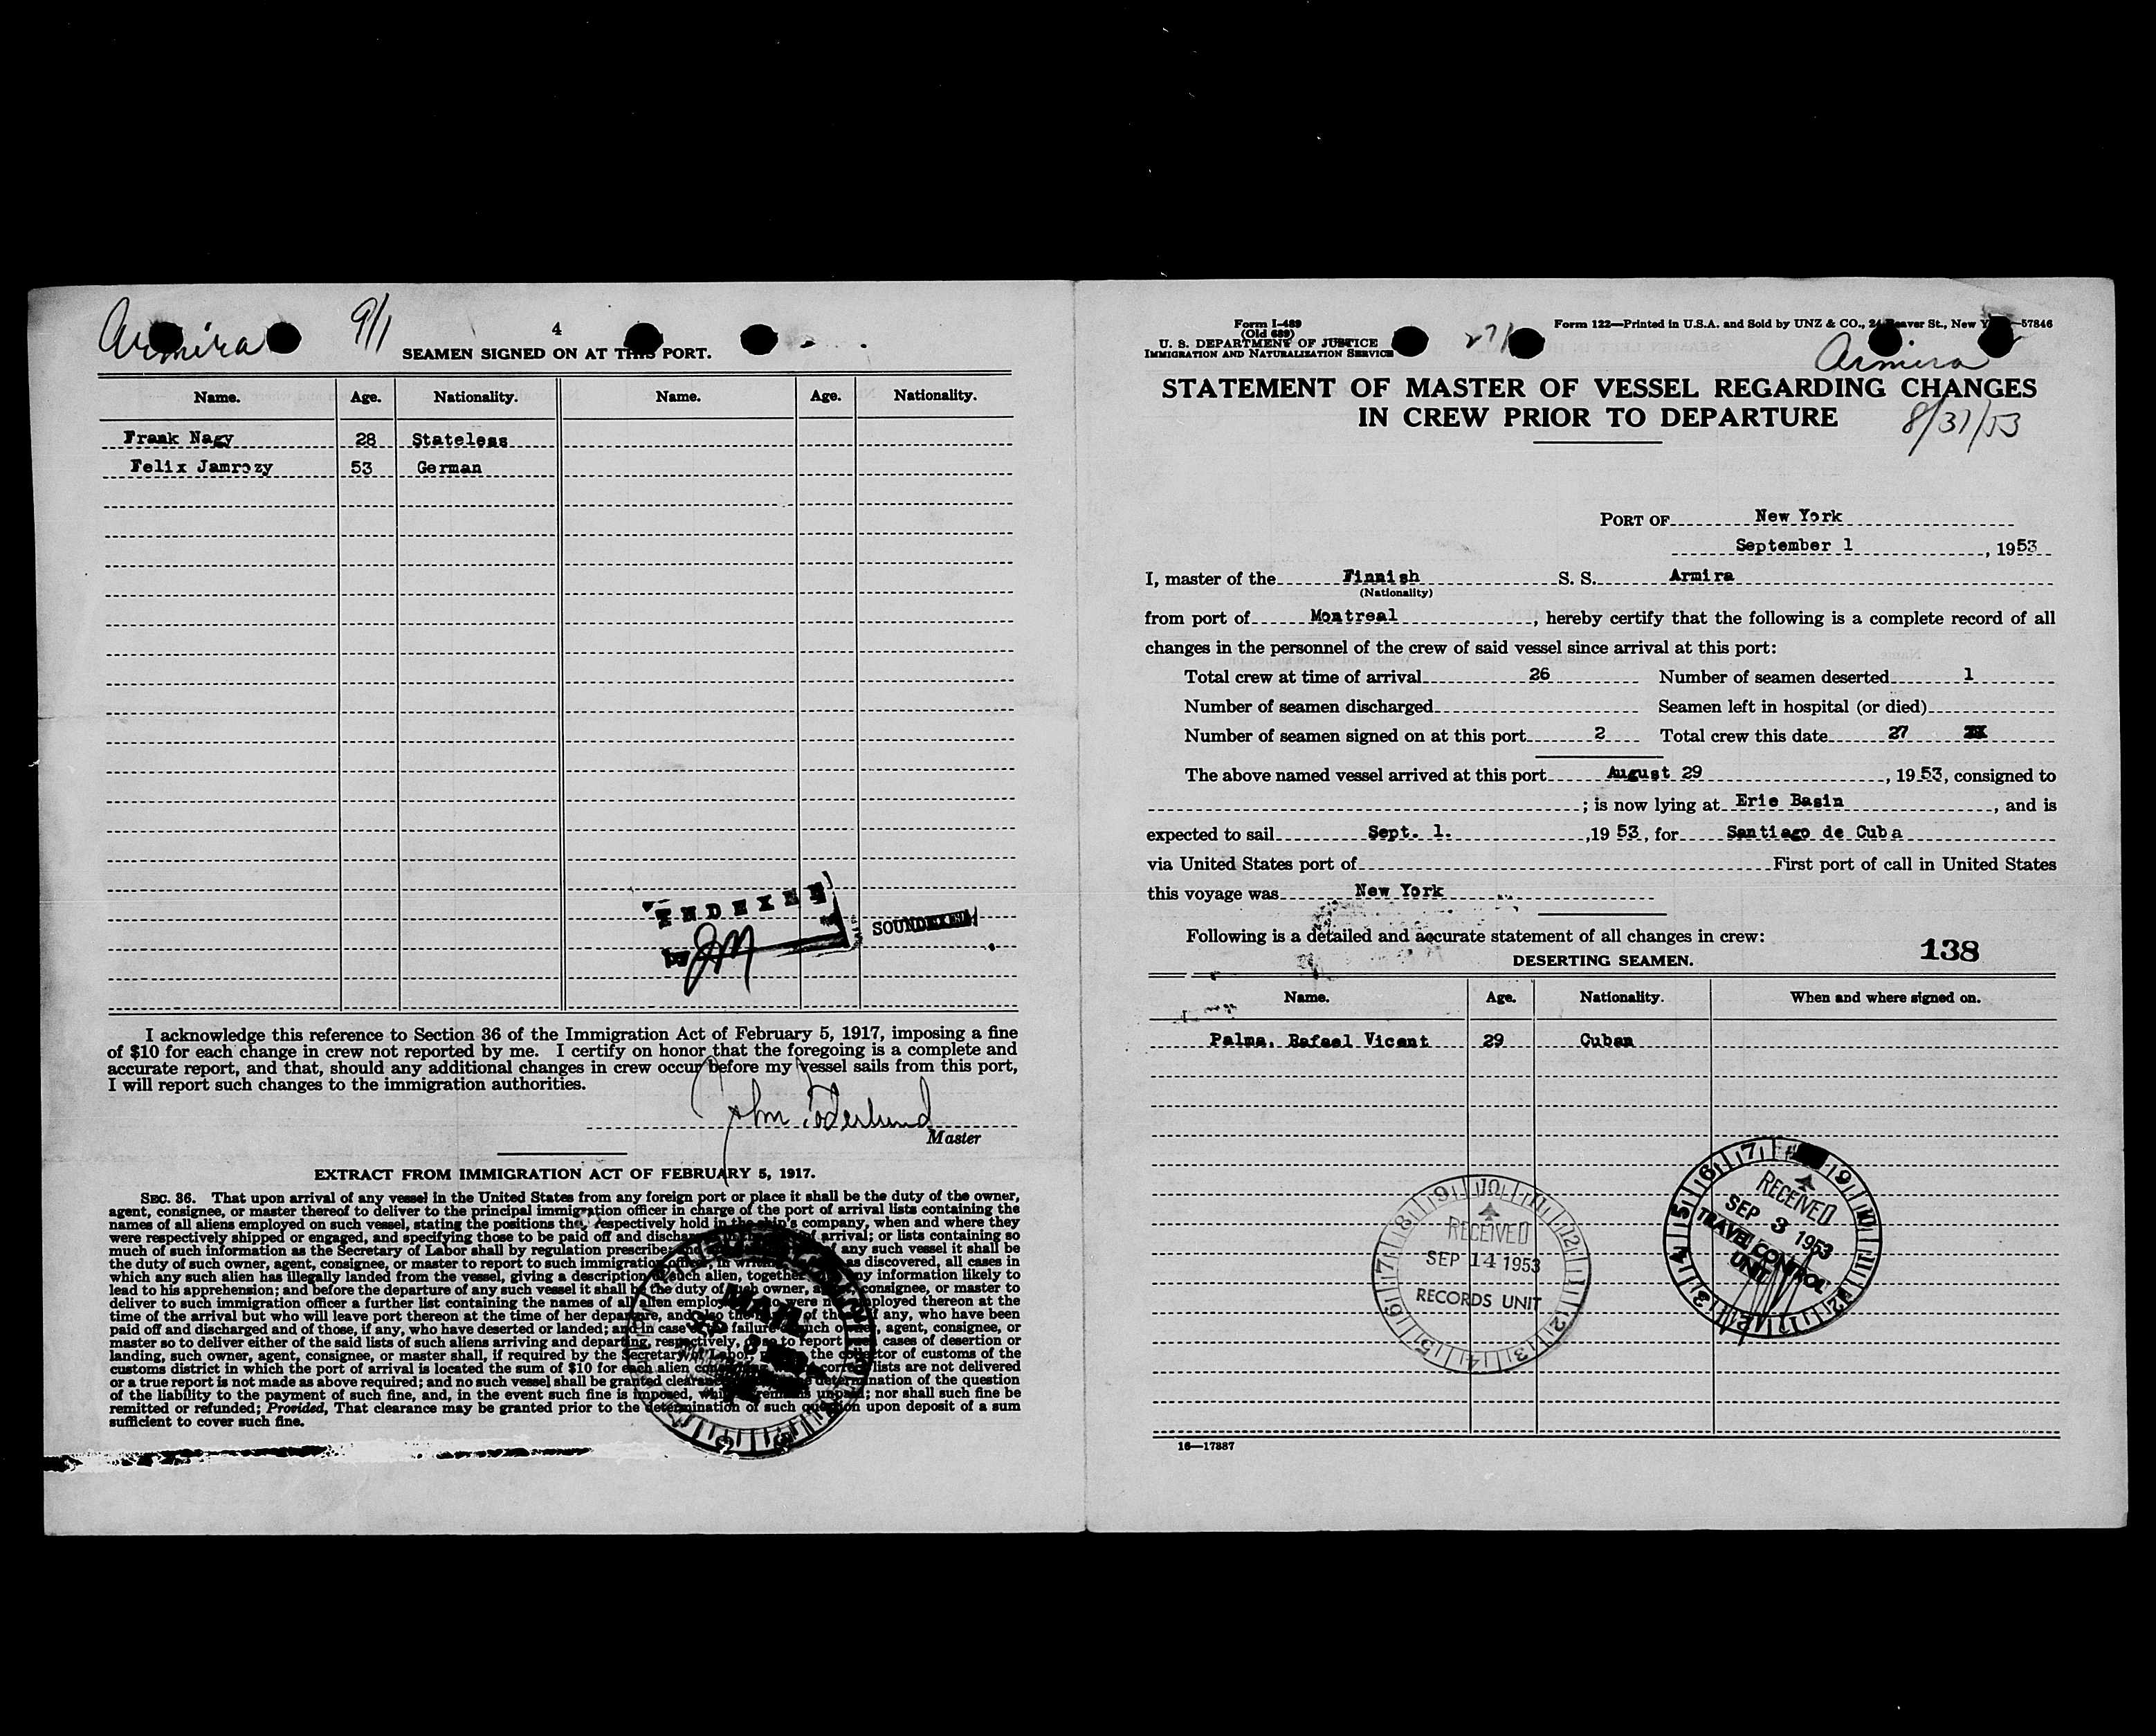 Armira 9/1
4
SEAMEN SIGNED ON AT THIS PORT.
Name. Age. Nationality. Name. Age. Nationality.
Frank Nagy 28 Stateless
Felix Jamrozy 53 German
INDEXED
by JM
SOUNDEXED
I acknowledge this reference to Section 36 of the Immigration Act of February 5, 1917, imposing a fine
of $10 for each change in crew not reported by me. I certify on honor that the foregoing is a complete and
accurate report, and that, should any additional changes in crew occur before my vessel sails from this port,
I will report such changes to the immigration authorities.
John Söderlund
Master
EXTRACT FROM IMMIGRATION ACT OF FEBRUARY 5, 1917.
SEC. 36. That upon arrival of any vessel in the United States from any foreign port or place it shall be the duty of the owner,
agent, consignee, or master thereof to deliver to the principal immigration officer in charge of the port of arrival lists containing the
names of all aliens employed on such vessel, stating the positions they respectively hold in the ship's company, when and where they
were respectively shipped or engaged, and specifying those to be paid off and discharged in the port of arrival; or lists containing so
much of such information as the Secretary of Labor shall by regulation prescribe; and any such vessel it shall be
the duty of such owner, agent, consignee, or master to report to such immigration officer, in writing as discovered, all cases in
which any such alien has illegally landed from the vessel, giving a description of such alien, together any information likely to
lead to his apprehension; and before the departure of any such vessel it shall be the duty of such owner, agent, consignee, or master to
deliver to such immigration officer a further list containing the names of all alien employees who were not employed thereon at the
time of the arrival but who will leave port thereon at the time of her departure, and also the names of those, if any, who have been
paid off and discharged and of those, if any, who have deserted or landed; and in case of the failure of such owner, agent, consignee, or
master so to deliver either of the said lists of such aliens arriving and departing, respectively, or so to report such cases of desertion or
landing, such owner, agent, consignee, or master shall, if required by the Secretary of Labor, pay to the collector of customs of the
customs district in which the port of arrival is located the sum of $10 for each alien concerning whom correct lists are not delivered
or a true report is not made as above required; and no such vessel shall be granted clearance determination of the question
of the liability to the payment of such fine, and, in the event such fine is imposed, while it remains unpaid; nor shall such fine be
remitted or refunded; Provided, That clearance may be granted prior to the determination of such question upon deposit of a sum
sufficient to cover such fine.
MAIL
Form I-489
(Old 689)
U. S. DEPARTMENT OF JUSTICE
IMMIGRATION AND NATURALIZATION SERVICE
Form 122—Printed in U.S.A. and Sold by UNZ & CO., 24 Beaver St., New Y —57846
Armira
STATEMENT OF MASTER OF VESSEL REGARDING CHANGES
IN CREW PRIOR TO DEPARTURE
8/31/53
PORT OF New York
September 1, 1953
I, master of the Finnish S. S. Armira
(Nationality)
from port of Montreal, hereby certify that the following is a complete record of all
changes in the personnel of the crew of said vessel since arrival at this port:
Total crew at time of arrival 26 Number of seamen deserted 1
Number of seamen discharged Seamen left in hospital (or died)
Number of seamen signed on at this port 2 Total crew this date 27
The above named vessel arrived at this port August 29, 1953, consigned to
; is now lying at Erie Basin, and is
expected to sail Sept. 1. ,1953, for Santiago de Cuba
via United States port of First port of call in United States
this voyage was New York
Following is a detailed and accurate statement of all changes in crew:
138
DESERTING SEAMEN.
Name. Age. Nationality. When and where signed on.
Palma, Rafael Vicent 29 Cuban
RECEIVED
SEP 14 1953
RECORDS UNIT
RECEIVED
SEP 3 1953
TRAVEL CONTROL
UNIT
16—17887